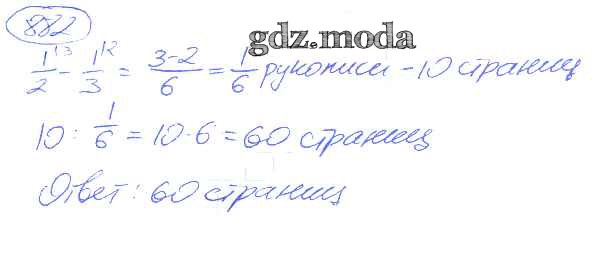 882
gdz.moda
1/2^{\3} - 1/3^{\2} = (3-2)/6 = 1/6 рукописи - 10 страниц
10 : 1/6 = 10·6 = 60 страниц
Ответ: 60 страниц